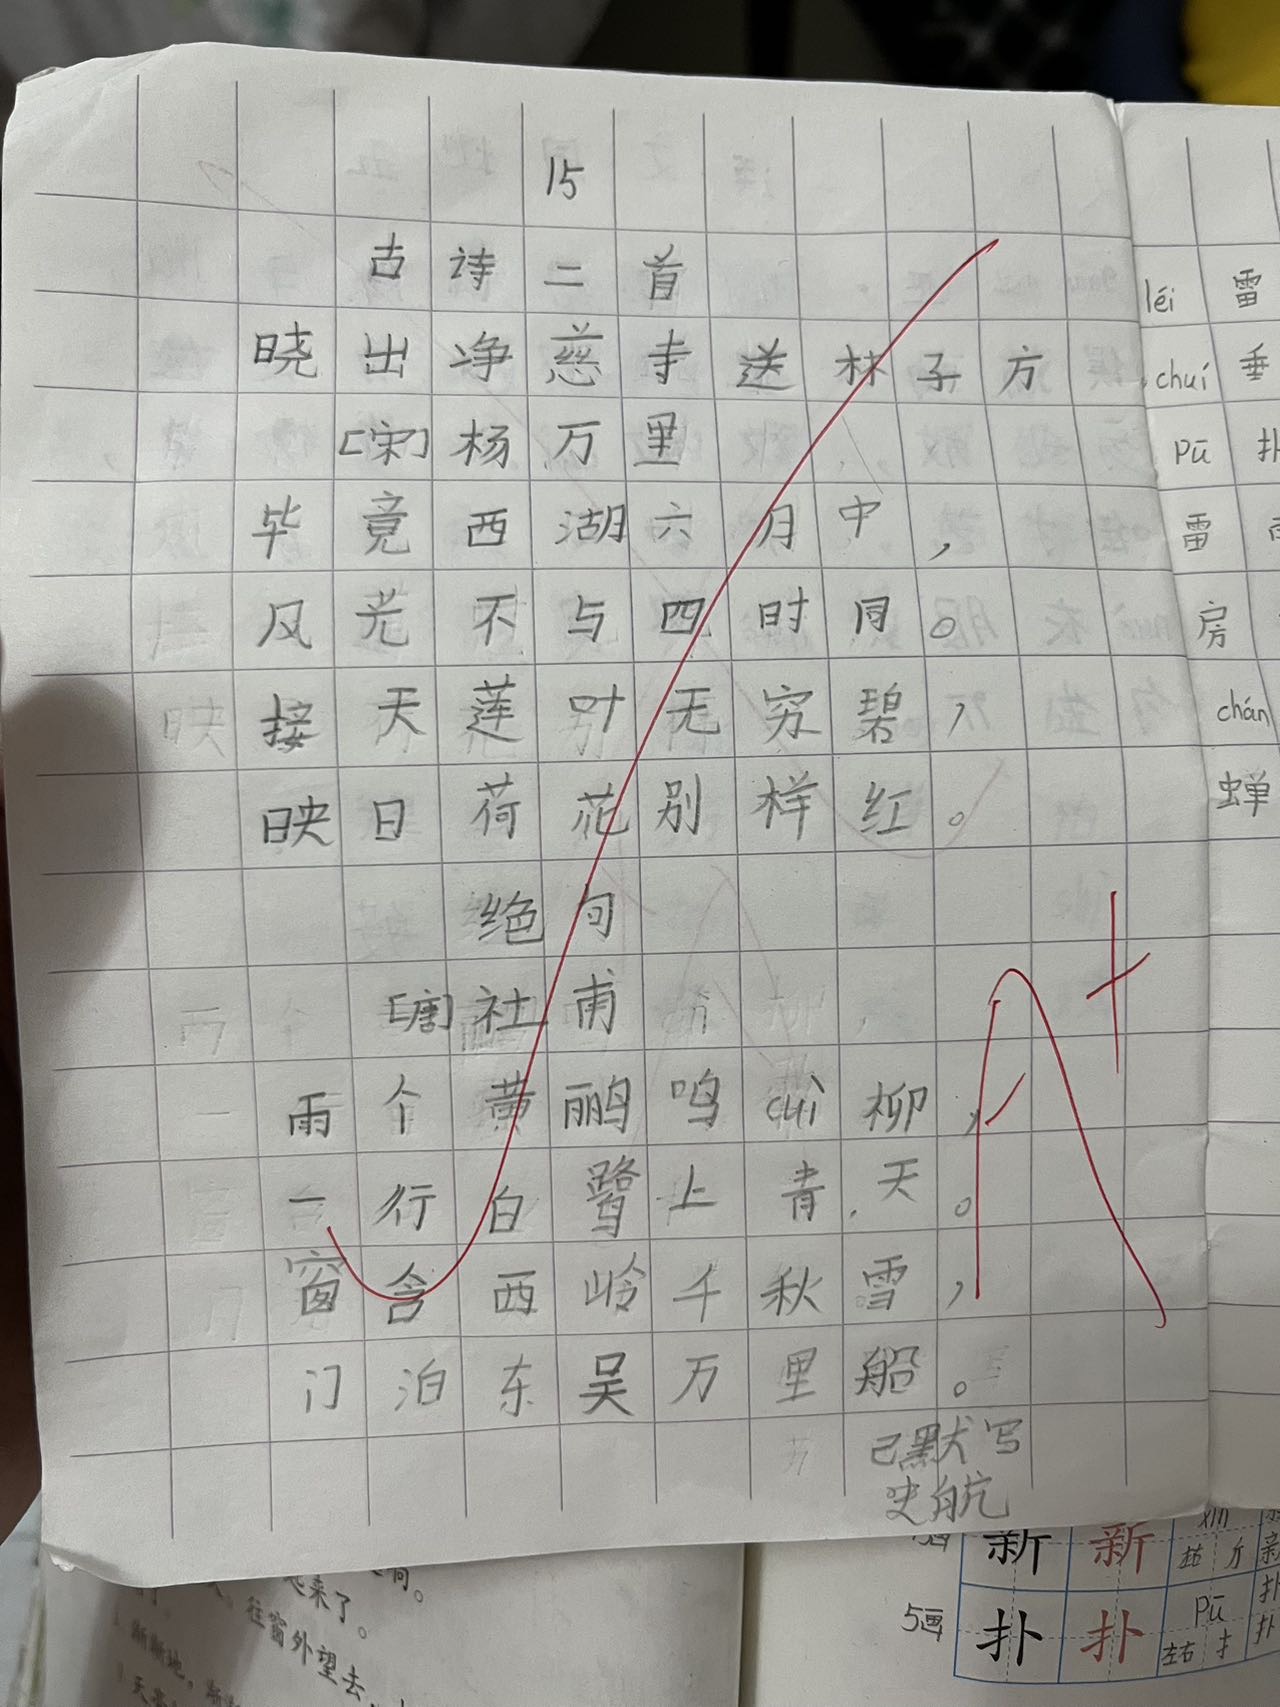 15
古诗二首
晓出净慈寺送林子方
[宋]杨万里
毕竟西湖六月中，
风光不与四时同。
接天莲叶无穷碧，
映日荷花别样红。
绝句
[唐]社甫
雨个黄鹂鸣cuì柳，
一行白鹭上青天。
窗含西岭千秋雪，
门泊东吴万里船。
已默写
史航
A+
léi 雷
chuí 垂
pū 扑
雷
房
chán
蝉
新 新 xīn
5画 扑 扑 pū
左右 扌
起来了。
往窗外望去，